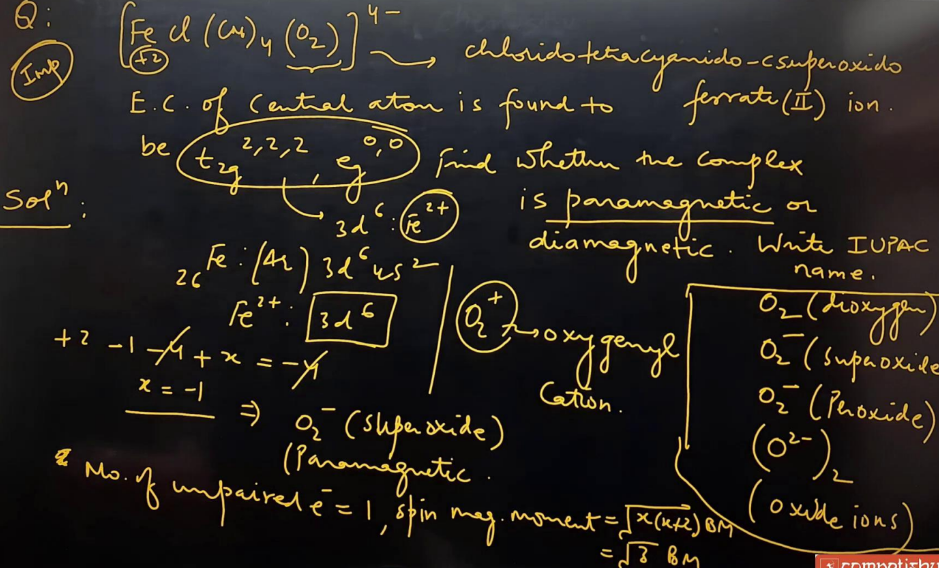 Q:
Imp
[Fe Cl (CN)4 (O2)]4-
+2
chloridotetracyanido-csuperoxido
ferrate(II) ion.
E.C. of central atom is found to
be t2g 2,2,2, eg 0,0 Find whether the complex
is paramagnetic or
diamagnetic. Write IUPAC
name.
Soln:
3d6: Fe2+
26Fe: (Ar) 3d6 4s2
Fe2+: 3d6
+2 -1 -4 + x = -4
x = -1
⇒ O2- (Superoxide)
(Paramagnetic.
O2+ → oxygenyl
Cation.
O2 (dioxygen)
O2- (Superoxide
O2- (Peroxide)
(O2-)2
(oxide ions)
No. of unpaired e- = 1, spin mag. moment = √x(x+2) BM
= √3 BM